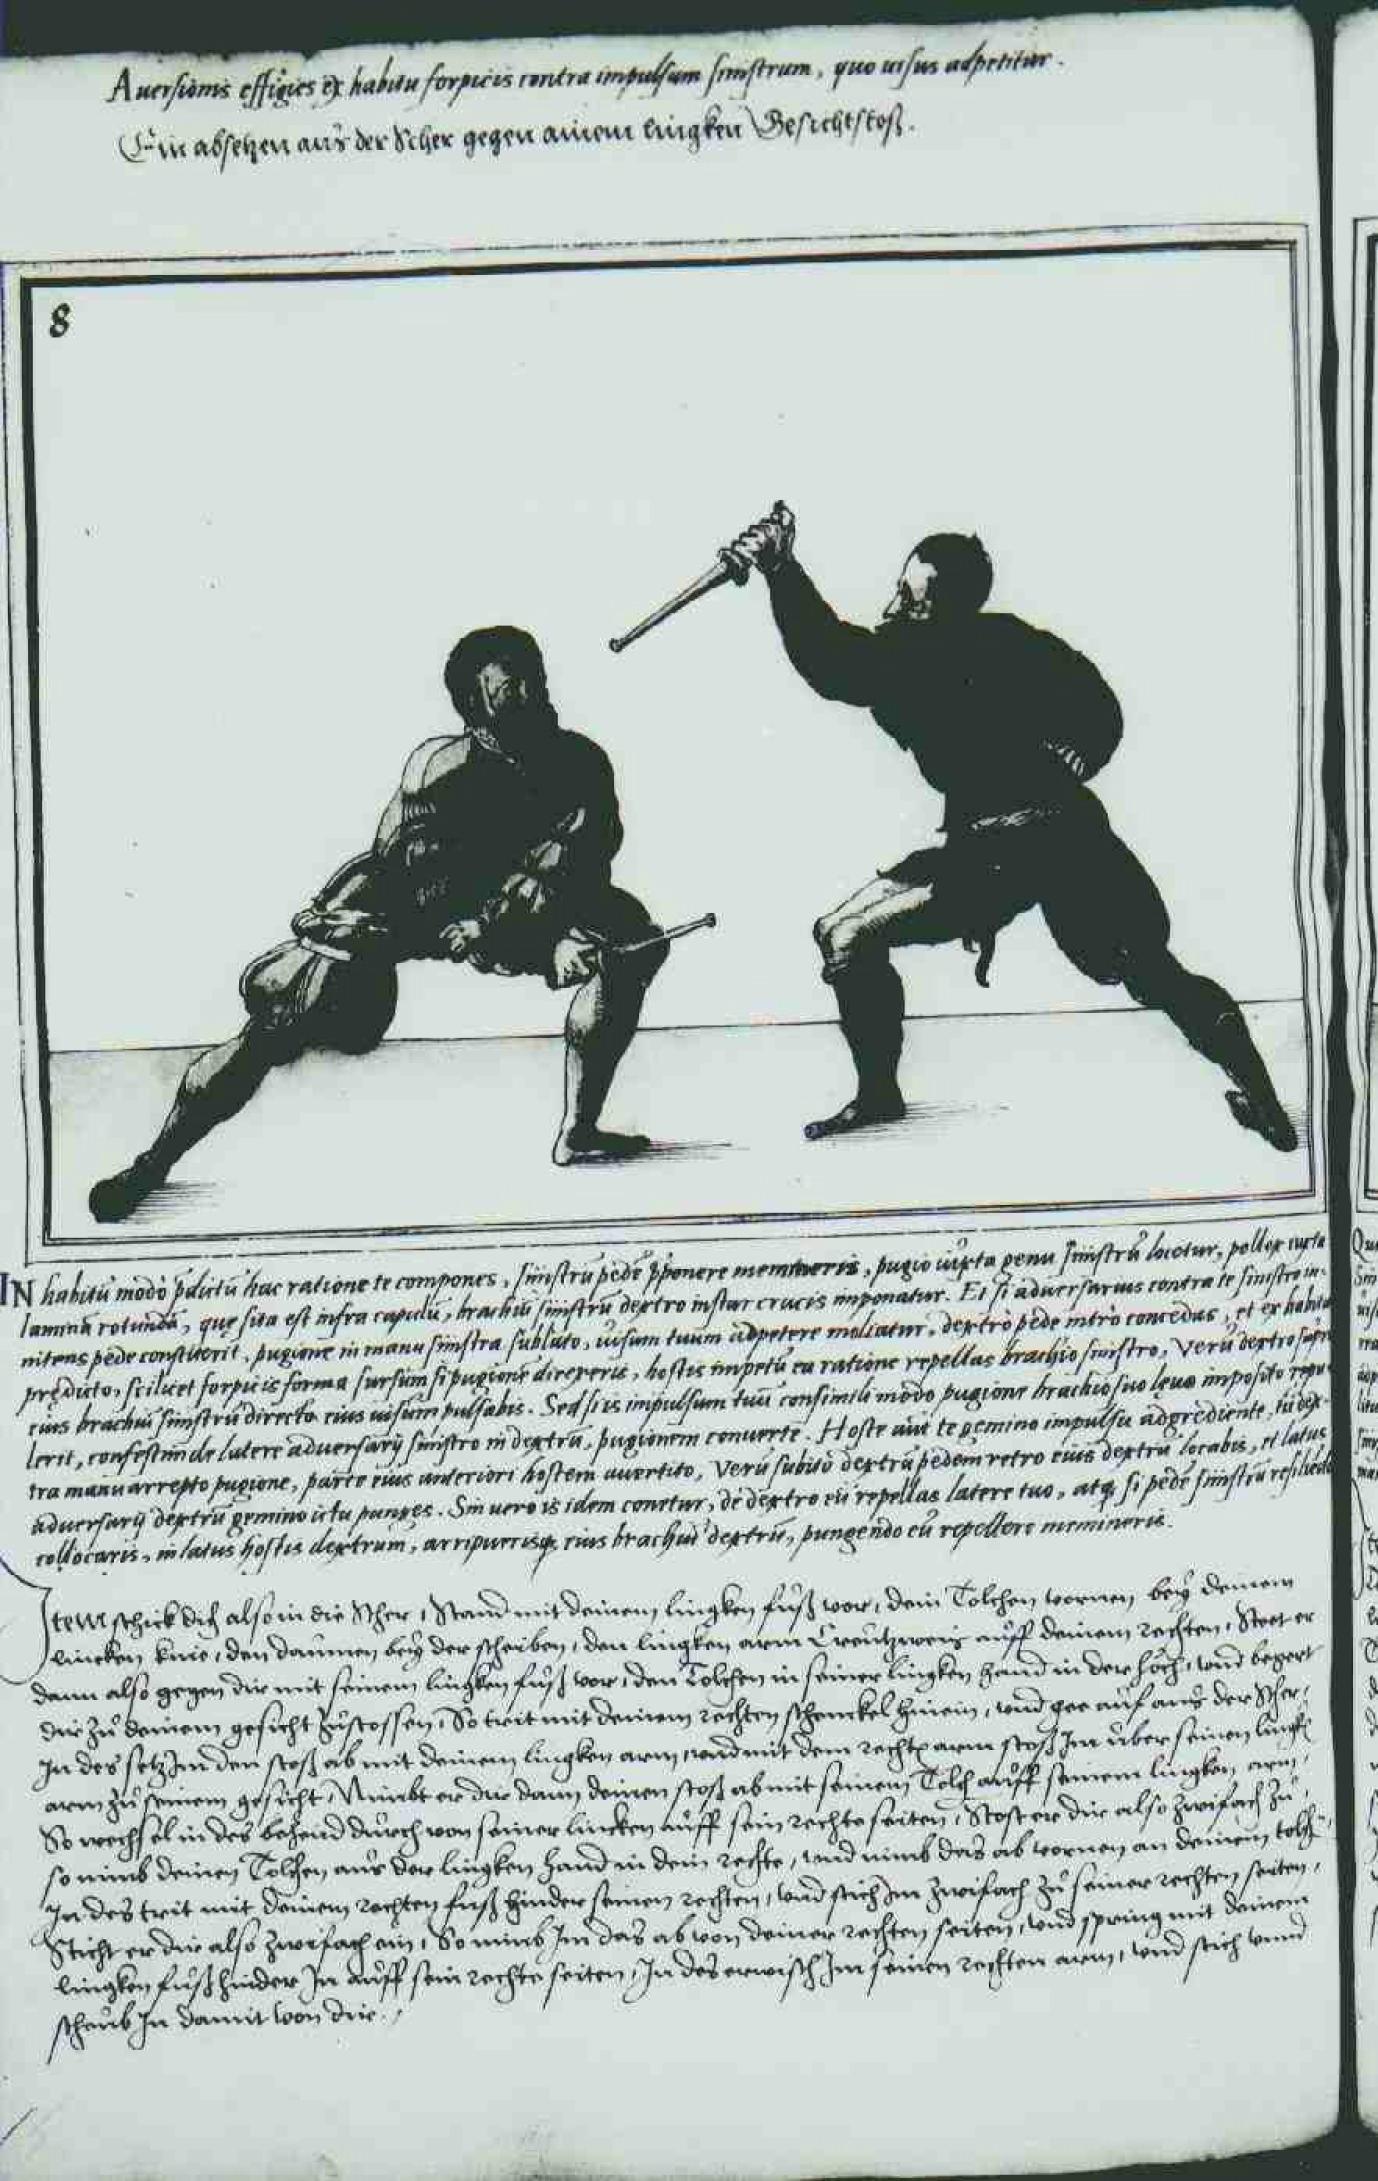 Aversionis effigies ex habitu forpicis contra impulsum sinistrum, quo uisus adpetitur.
Ein absetzen aus der Scher gegen ainem lingken Gesichtstoß.
8
IN habitũ modò p̃dictũ hac ratione te compones, sinistrũ pedẽ p̃ponere memineris, pugio iuxta genu sinistrũ locetur, pollex iuxta
laminã rotundã, quę sita est infra capulũ, brachiũ sinistrũ dextro instar crucis imponatur. Et si aduersarius contra te sinistro in-
nitens pede constiterit, pugione in manu sinistra sublato, uisum tuum adpetere moliatur, dextro pede intrò concedas, et ex habitu
prędicto, scilicet forpicis forma sursum si pugionẽ direxeris, hostis impetũ ea ratione repellas brachio sinistro, Verũ dextro supra
eius brachiũ sinistrũ directo eius uisum pulsabis. Sed si is impulsum tuũ consimili modo pugione brachio suo lęuo imposito repu-
lerit, confestim de latere aduersarij sinistro in dextrũ, pugionem conuerte. Hoste aũt te gemino impulsu adgrediente, tũ dex-
tra manu arrepto pugione, parte eius anteriori hostem auertito, Verũ subitò dextrũ pedem retro eius dextrũ locabis, et latus
aduersarij dextrũ gemino ictu punges. Sin uero is idem conetur, de dextro eũ repellas latere tuo, atq. si pedẽ sinistrũ resiliendo
collocaris, in latus hostis dextrum, arripuerisq. eius brachiũ dextrũ, pungendo eũ repellere memineris.
Item schick dich also in die Scher, Stand mit deinem lingken fuß vor, dein Tolchen vornen bey deinem
lincken knie, den daumen bey der scheiben, den lingken arm Creutzweis auff deinem rechten, Steet er
dann also gegen dir mit seinem lingken fuß vor, den Tolchen in seiner lingken hand in der höch, und begert
dir zu deinem gesicht zustossen, So trit mit deinem rechten schenckel hinein, und gee auf aus der Scher,
In des setz Im den stoß ab mit deinem lingken arm, und mit dem rechtẽ arm stoß Im über seinen lingkẽ
arm zu seinem gesicht, Nimbt er dir dann deinen stoß ab mit seinem Tolch auff seinem lingken arm,
So wechsel in des behend durch von seiner lincken auff sein rechte seiten, Stost er dir also zwifach zu,
so nimb deinen Tolchen aus der lingken hand in dein rechte, und nimb das ab vornen an deinem tolchẽ,
In des trit mit deinem rechten fuß hinder seinen rechten, und stich Im zwifach zu seiner rechten seiten,
Sticht er dir also zwifach ein, So nimb Im das ab von deiner rechten seiten, und spring mit deinem
lingken fuß hinder In auff sein rechte seiten, In des erwisch Im seinen rechten arm, und stich unnd
scheub In damit von dir.